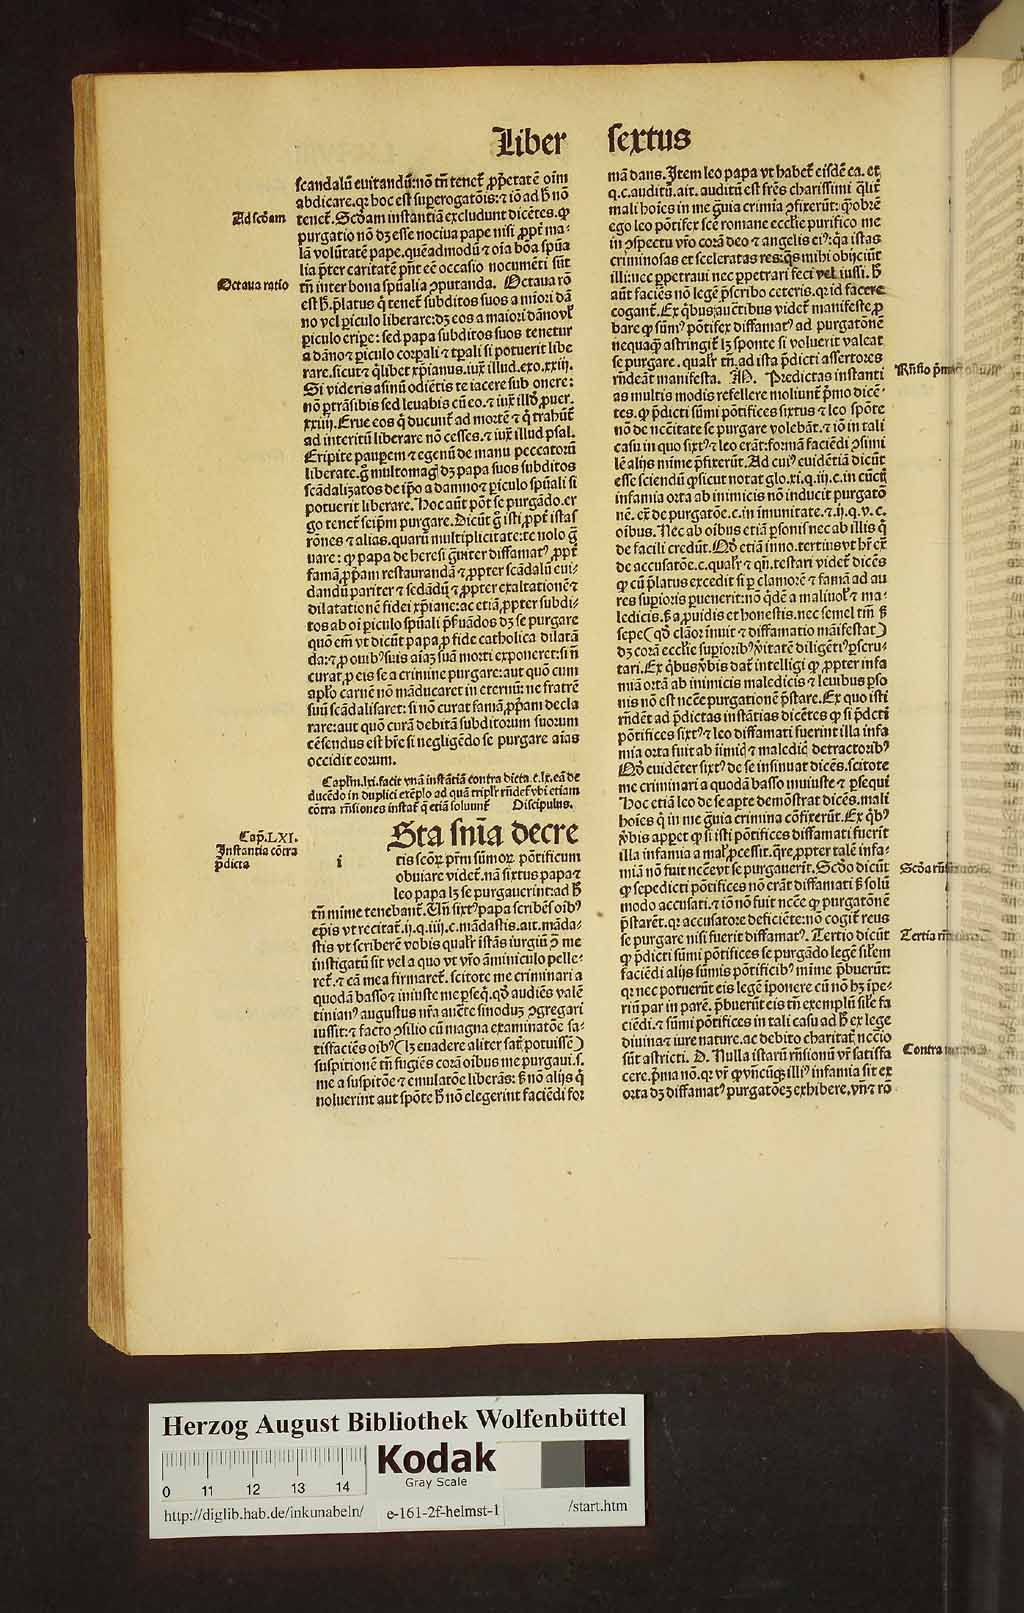 Liber sextus
scandalū euitandū: nō tn̄ tenet᷑ ꝓp̄etatē oīm
abdicare. qꝛ hoc est suꝑerogatōis: ⁊ iō ad ħ nō
Ad scd̄am
tenet᷑. Scd̄am instantiā excludunt dicētes. ꝙ
purgatio nō dꝫ esse nociua pape nisi ꝓpt᷑ ma⸗
lā volūtatē pape. quēadmodū ⁊ oīa bōa spūa
lia p̄ter caritatē pn̄t eē occasio nocumēti sūt
Octaua ratio
tn̄ inter bona spūalia ꝯputanda. Octaua rō
est ħ. p̄latus q̄ tenet᷑ subditos suos a miori dā
no vel ꝑiculo liberare: dꝫ eos a maiori dāno vl̓
ꝑiculo eriꝑe: sed papa subditos suos tenetur
a dāno ⁊ ꝑiculo corꝑali ⁊ tꝑali si potuerit libe
rare. sicut ⁊ q̄libet xp̄ianus. iux̄ illud. exo. xxiij.
Si videris asinū odiētis te iacere sub onere:
nō ꝑtrāsibis sed leuabis cū eo. ⁊ iux̄ illd̓ ꝓuer.
xxiiij. Erue eos q̄ ducunt᷑ ad mortē ⁊ q̄ trahūt᷑
ad interitū liberare nō cesses. ⁊ iux̄ illud psal.
Eripite pauꝑem ⁊ egenū de manu peccatorū
liberate. g̊ multomagꝭ dꝫ papa suos subditos
scādalizatos de ip̄o a damno ⁊ ꝑiculo spūali si
potuerit liberare. Hoc aūt pōt se purgādo. er
go tenet᷑ seip̄m purgare. Dicūt g̊ isti ꝓpt᷑ istas
rōnes ⁊ alias. quarū multiplicitate: te nolo g̊
uare: ꝙ papa de heresi g̊uiter diffamatꝰ ꝓpt᷑
famā ꝓp̄am restaurandā ⁊ ꝓpter scādalū eui⸗
dandū pariter ⁊ sedādū ⁊ ꝓpter exaltationē ⁊
dilatationē fidei xp̄iane: ac etiā ꝓpter subdi⸗
tos ab oi ꝑiculo spūali p̄seruādos dꝫ se purgare
quō em̄ vt dicūt papa ꝓ fide catholica dilatā
da: ⁊ ꝓ ouibꝰ suis aīaꝫ suā morti exponeret: si n̄
curat ꝓ eis se a crimine purgare: aut quō cum
apl̓o carnē nō māducaret in eternū: ne fratrē
suū scādalisaret: si nō curat famā ꝓp̄am decla
rare: aut quō curā debitā subditorum suorum
cēsendus est hr̄e si negligēdo se purgare aīas
occidit eorum.
Caplm̄. lxi. facit vnā instātiā contra dicta. c. lx. eā de
ducēdo in duplici exēplo ad quā triplr̄ rn̄det᷑ vbi etiam
cōtra rn̄siones instat᷑ q̄ etiā soluunt᷑ Discipulus.
Cap. LXI.
Instantia cōtra
p̄dicta
i
Sta sn̄ia decre
tis scōꝝ pr̄m sūmoꝝ pōtificum
obuiare videt᷑. nā sixtus papa ⁊
leo papa lꝫ se purgauerint: ad ħ
tn̄ mīme tenebant᷑. Vn̄ sixtꝰ papa scribēs oībꝰ
ep̄is vt recitat᷑. ij. q. iiij. c. mādastis. ait. māda⸗
stis vt scriberē vobis qualr̄ istās iurgiū ꝯ me
instigatū sit vel a quo vt vr̄o āminiculo pelle⸗
ret᷑. ⁊ eā mea firmaret᷑. scitote me criminari a
quodā basso ⁊ iniuste me ꝑseq̄. qd̓ audiēs valē
tinianꝰ augustus nr̄a auct̄e sinoduꝫ ꝯgregari
iussit: ⁊ facto ꝯsilio cū magna examinatōe sa⸗
tisfaciēs oībꝰ (lꝫ euadere aliter sat᷑ potuissē)
suspitionē tn̄ fugiēs corā oībus me purgaui. s.
me a suspitōe ⁊ emulatōe liberās: ꝭ nō alijs q̄
noluerint aut spōte ħ nō elegerint faciēdi for
mā dans. Item leo papa vt habet᷑ eisdē ca. et
q. c. auditū. ait. auditū est fr̄es charissimi q̄lit᷑
mali hoīes in me g̊uia crimīa ꝯfixerūt: qm̄obrē
ego leo pōtifex scē romane eccl̓ie purifico me
in ꝯspectu vr̄o corā deo ⁊ angelis eiꝰ: q̄a istas
criminosas et sceleratas res: q̄s mihi obijciūt
illi: nec ꝑpetraui nec ꝑpetrari feci vel iussi. ħ
aūt faciēs nō legē p̄scribo ceteris. qꝛ id facere
cogant᷑. Ex q̄bus auc̄tibus videt᷑ manifeste ꝓ
bare ꝙ sūmꝰ pōtifex diffamatꝰ ad purgatōnē
nequaq̄ astringit᷑ lꝫ sponte si voluerit valeat
se purgare. qualr̄ tn̄. ad ista p̄dicti assertores
Rn̄sio p̄ma
rn̄deāt manifesta. M. Predictas instanti
as multis modis refellere moliunt᷑ p̄mo dicē⸗
tes. ꝙ p̄dicti sūmi pōtifices sixtus ⁊ leo spōte
nō de nec̄itate se purgare volebāt. ⁊ iō in tali
casu in quo sixtꝰ ⁊ leo erāt: formā faciēdi ꝯsimi
lē alijs mīme p̄fixerūt. Ad cuiꝰ euidētiā dicūt
esse sciendū ꝙ sicut notat glo. xi. q. iij. c. in cūctꝭ
infamia orta ab inimicis nō inducit purgatō
nē. ex̄ de purgatōe. c. in imunitate. ⁊. ij. q. v. c.
oībus. Nec ab oībus etiā ꝑsonis nec ab illis q̄
de facili credūt. Qd̓ etiā inno. tertius vt hr̄ ex̄
de accusatōe. c. qualr̄ ⁊ qn̄. testari videt᷑ dicēs
ꝙ cū p̄latus excedit si ꝑ clamorē ⁊ famā ad au
res suꝑioris ꝑuenerit: nō q̄dē a maliuol̓ ⁊ ma⸗
ledicis. ꝭ a ꝓuidis et honestis. nec semel tm̄ ꝭ
sepe (qd̓ clāor īnuit ⁊ diffamatio māifestat)
dꝫ corā eccl̓ie suꝑioribꝰ v̓itatē diligētiꝰ ꝑscru⸗
tari. Ex q̄bus v̓bis dat᷑ intelligi ꝙ ꝓpter infa
miā ortā ab inimicis maledicis ⁊ leuibus ꝑso
nis nō est nccē purgationē p̄stare. Ex quo isti
rn̄dēt ad p̄dictas instātias dicētes ꝙ si p̄dcti
pōtifices sixtꝰ ⁊ leo diffamati fuerint illa infa
mia orta fuit ab īimiꝯ ⁊ maledicꝭ detractoribꝰ
Qd̓ euidēter sixtꝰ de se insinuat dicēs. scitote
me criminari a quodā basso iniuste ⁊ ꝑsequi
Hoc etiā leo de se apte demōstrat dicēs. mali
hoīes q̄ in me g̊uia crimina cōfixerūt. Ex q̄bꝰ
v̓bis appet ꝙ si isti pōtifices diffamati fuerīt
illa infamia a mal̓ ꝓcessit. q̄re ꝓpter talē infa⸗
Scd̄a rn̄sio
miā nō fuit nccē vt se purgauerīt. Scd̄o dicūt
ꝙ sepedicti pōtifices nō erāt diffamati ꝭ solū
modo accusati. ⁊ iō nō fuit nccē ꝙ purgatōnē
p̄starēt. qꝛ accusatore deficiēte: nō cogit᷑ reus
Tertia rn̄sio
se purgare nisi fuerit diffamatꝰ. Tertio dicūt
ꝙ p̄dicti sūmi pōtifices se purgādo legē sil̓em
faciēdi alijs sūmis pōtificibꝰ mīme p̄buerūt:
qꝛ nec potuerūt eis legē īponere cū nō hꝫ īpe⸗
riū par in parē. p̄buerūt eis tn̄ exemplū sil̓e fa
ciēdi. ⁊ sūmi pōtifices in tali casu ad ħ ex lege
diuina ⁊ iure nature. ac debito charitatꝭ nec̄io
Contra
sūt astricti. D. Nulla istarū rn̄sionū vr̄ satisfa
cere. p̄ma nō. qꝛ vr̄ ꝙ vn̄cūqꝫ illiꝰ infamia sit ex
orta dꝫ diffamatꝰ purgatōeꝫ exhibere. vn̄ ⁊ rō
Herzog August Bibliothek Wolfenbüttel
Kodak
Gray Scale
0 11 12 13 14
http://diglib.hab.de/inkunabeln/ e-161-2f-helmst-1 /start.htm